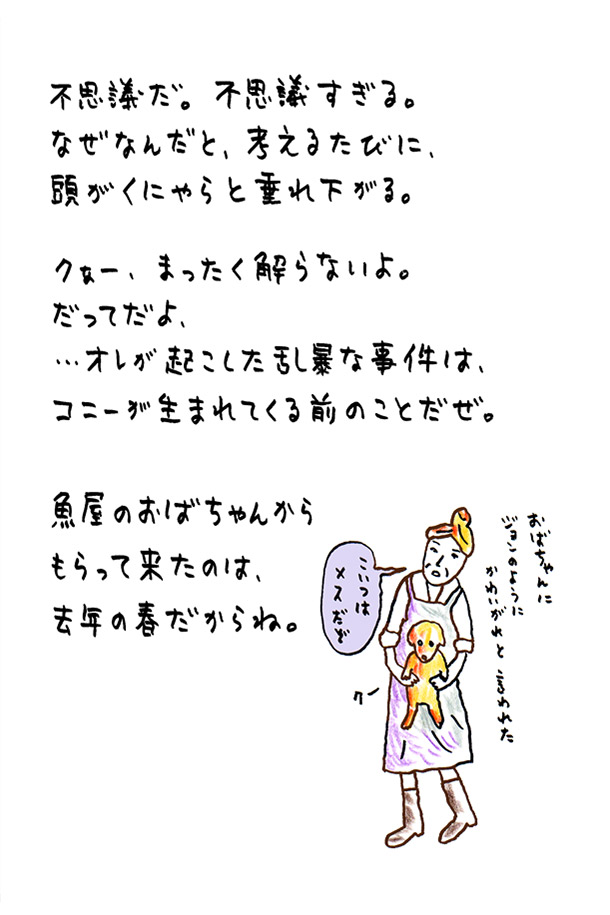 不思議だ。不思議すぎる。
なぜなんだと、考えるたびに、
頭がくにゃらと垂れ下がる。
クぁー、まったく解らないよ。
だってだよ、
…オレが起こした乱暴な事件は、
コニーが生まれてくる前のことだぜ。
魚屋のおばちゃんから
もらって来たのは、
去年の春だからね。
こいつは
メスだぞ
おばちゃんに
ジョンのように
かわいがれと言われた
クー